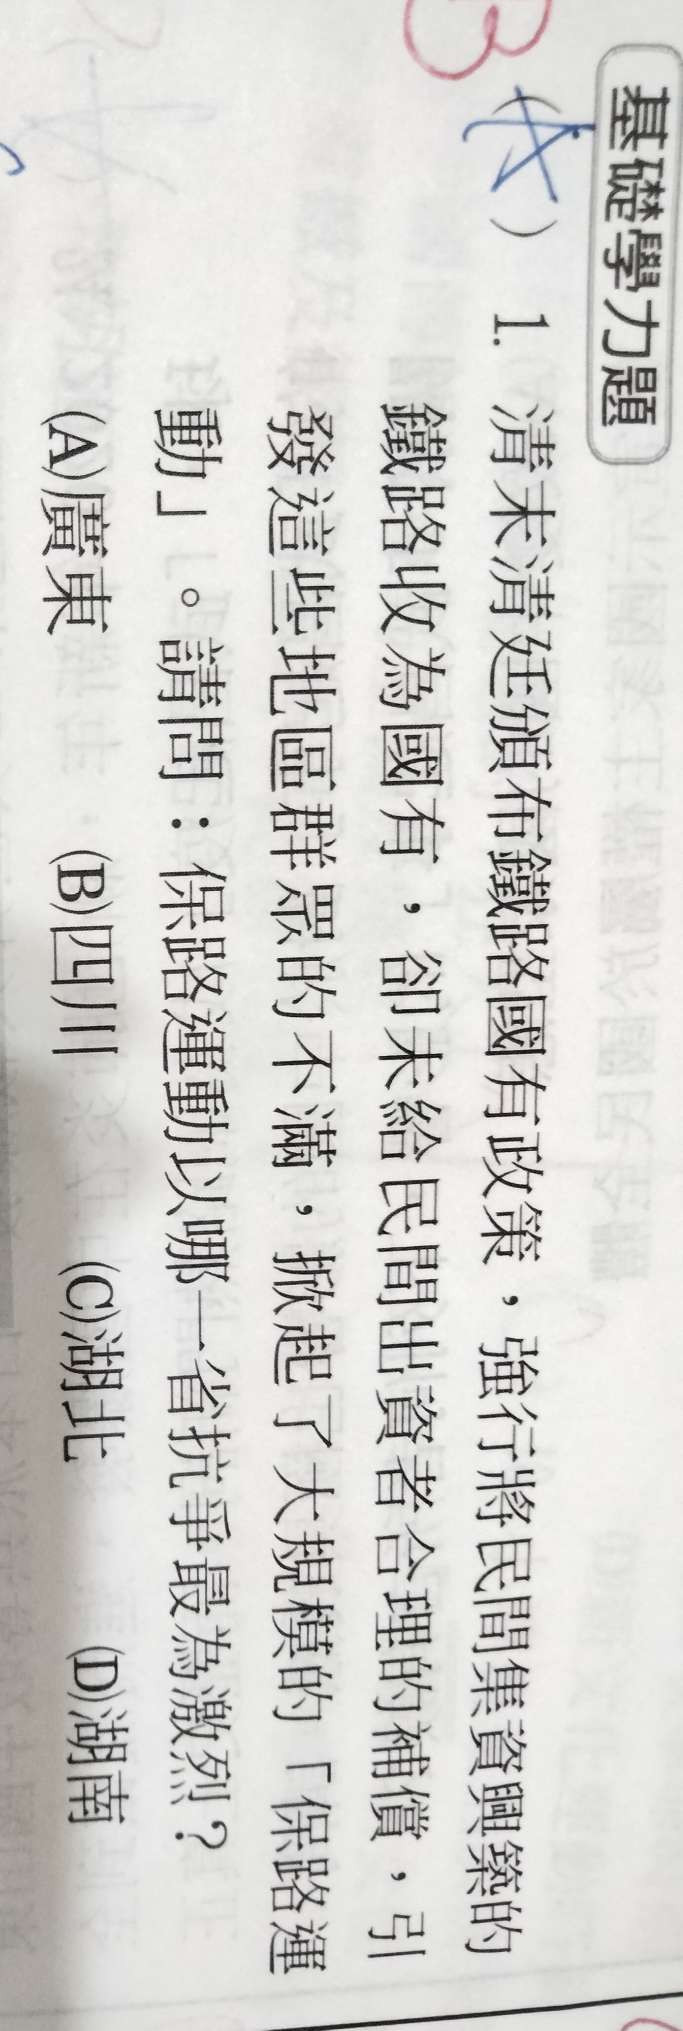 基礎學力題
B
(A) 1. 清末清廷頒布鐵路國有政策，強行將民間集資興築的
鐵路收為國有，卻未給民間出資者合理的補償，引
發這些地區群眾的不滿，掀起了大規模的「保路運
動」。請問：保路運動以哪一省抗爭最為激烈？
(A)廣東 (B)四川 (C)湖北 (D)湖南